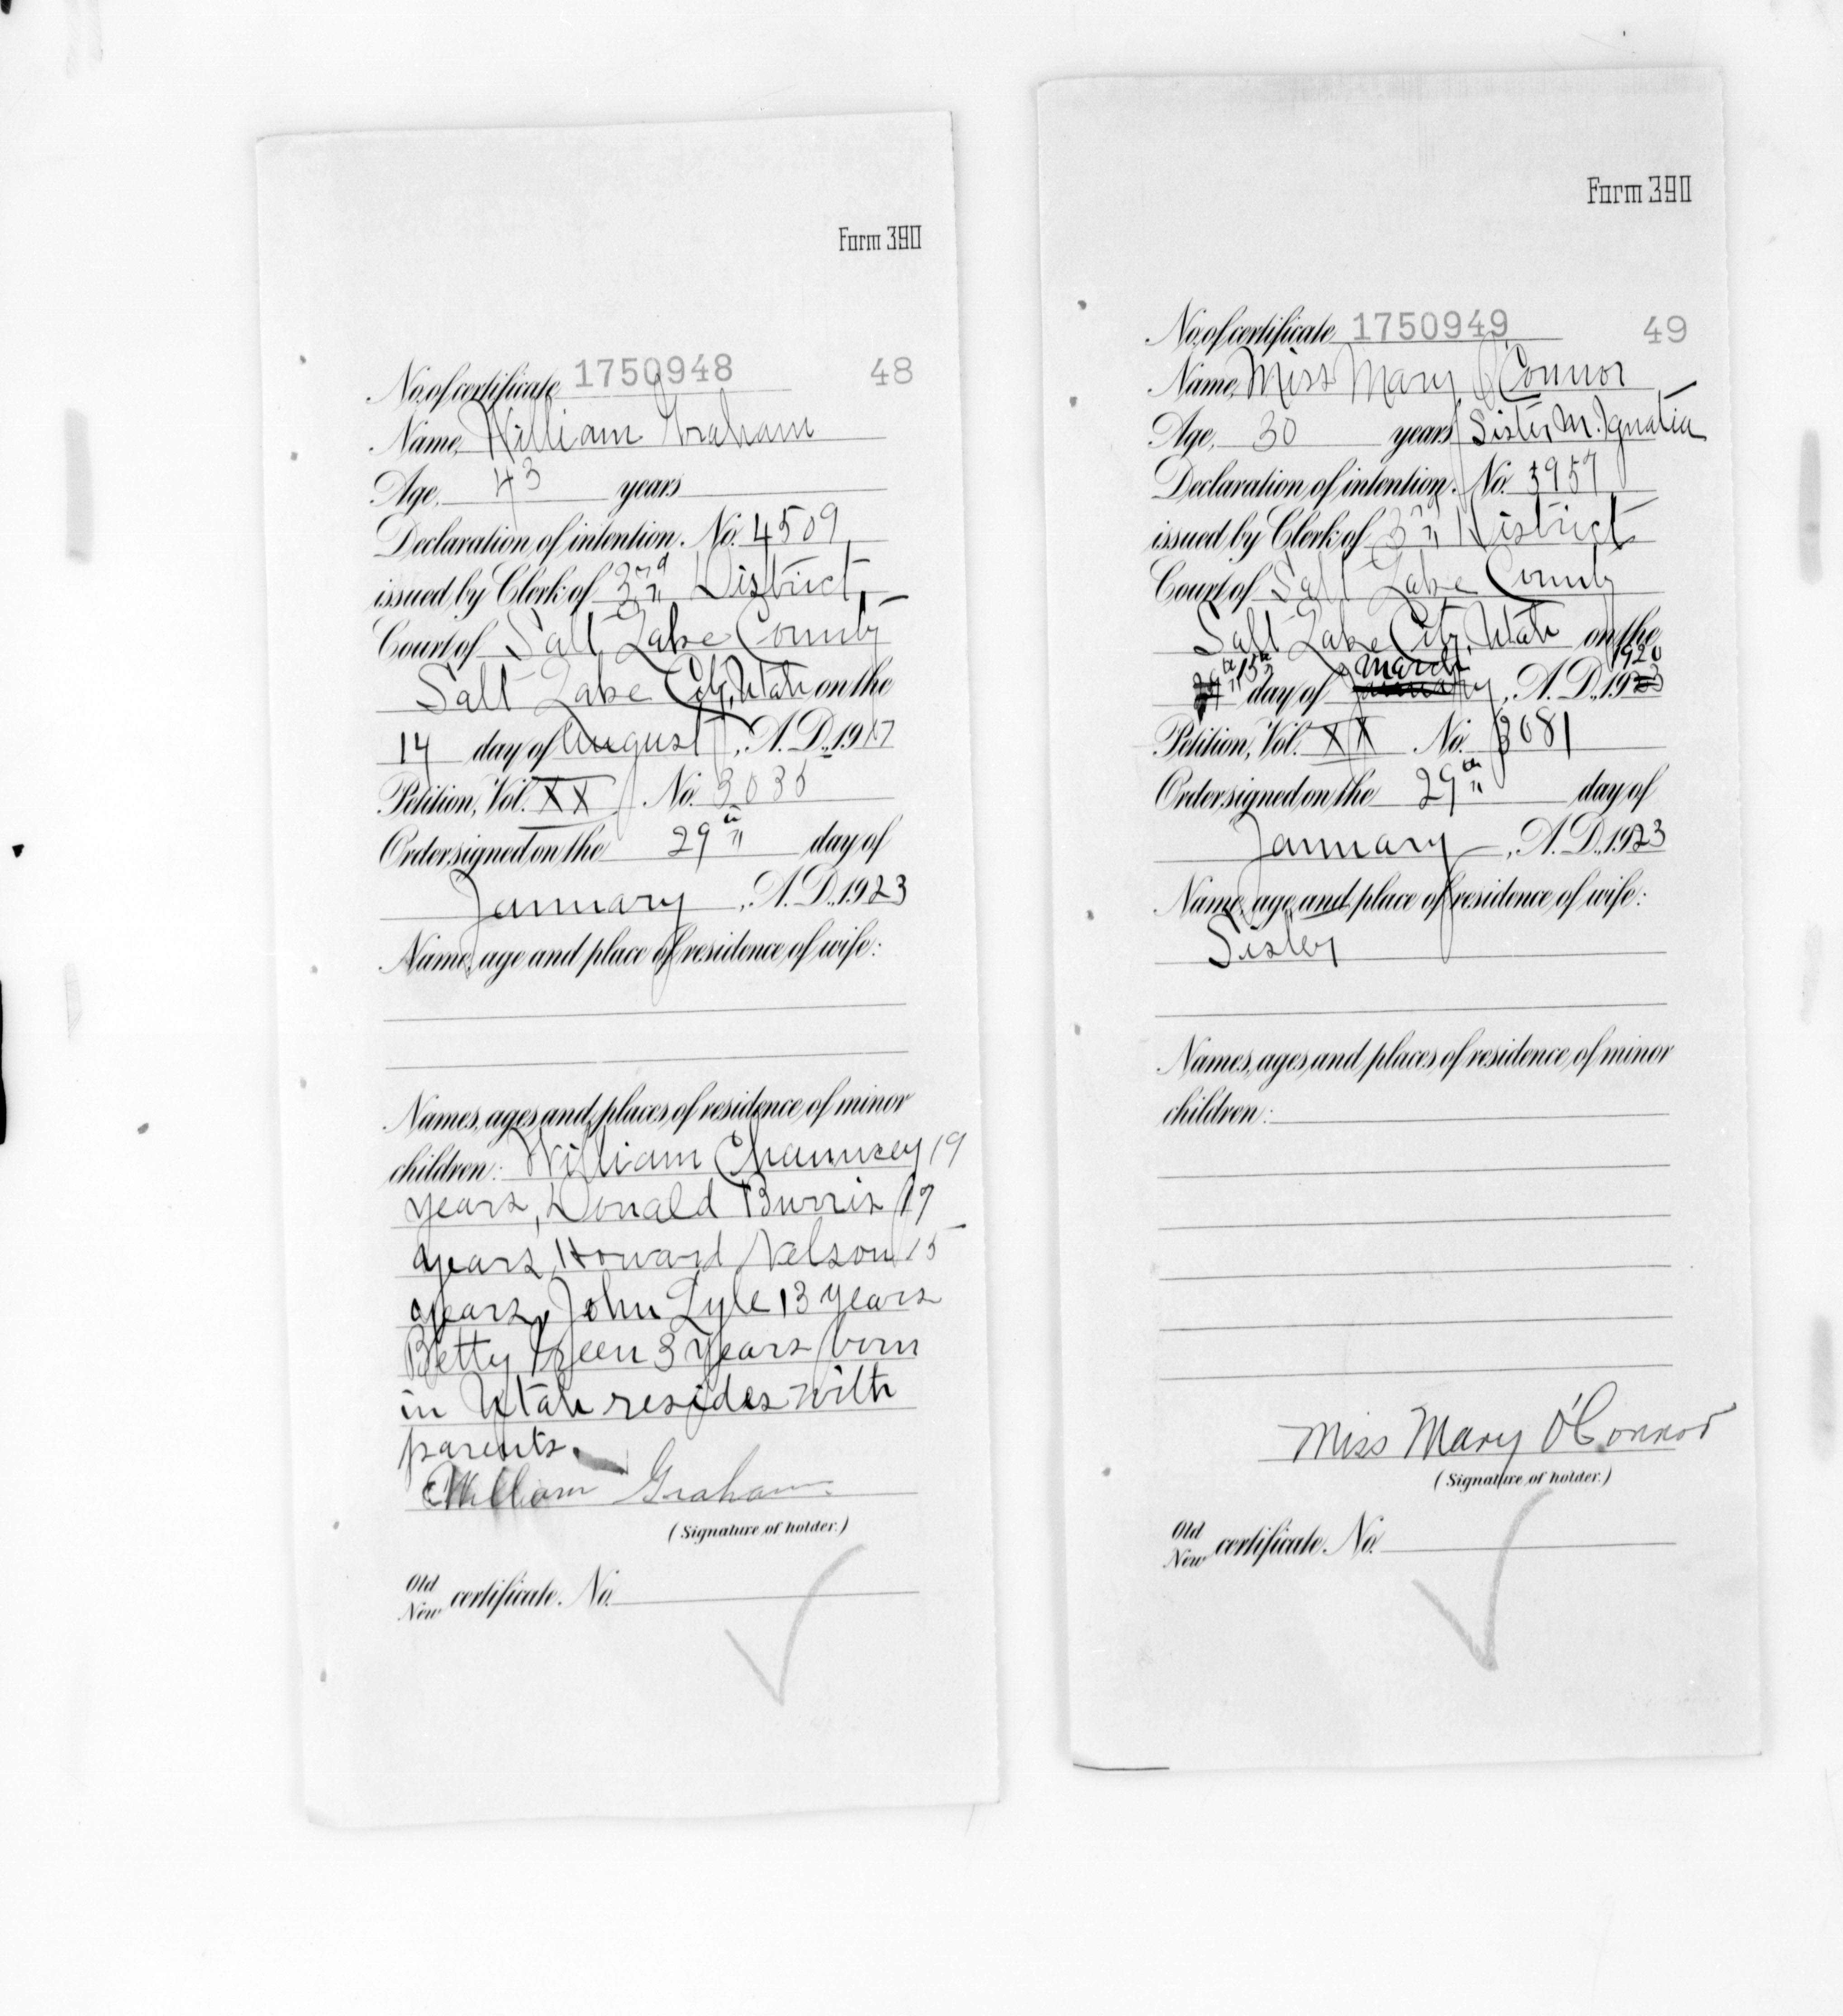 Form 390
No. of certificate 1750948 48
Name, William Graham
Age, 43 years
Declaration of intention, No. 4509
issued by Clerk of 3rd District
Court of Salt Lake County
Salt Lake City, Utah on the
14 day of August, A. D., 1917
Petition, Vol. XX No.
Order signed on the 29th day of
January, A. D., 1923
Name, age and place of residence of wife:
Names, ages and places of residence of minor
children: William Chauncey 19
years, Donald Burris 17
years, Howard Nelson 15
years, John Lyle 13 years
Betty 3 years born
in Utah resides with
parents.
William Graham
(Signature of holder.)
Old
New certificate, No.
Form 390
No. of certificate 1750949 49
Name, Miss Mary O'Connor
Age, 30 years Sister M. Ignatia
Declaration of intention, No. 3957
issued by Clerk of 3rd District
Court of Salt Lake County
Salt Lake City, Utah on the
15th day of March, A. D., 1920
Petition, Vol. XX No. 3081
Order signed on the 29th day of
January, A. D., 1923
Name, age and place of residence of wife:
Sister
Names, ages and places of residence of minor
children:
Miss Mary O'Connor
(Signature of holder.)
Old
New certificate, No.